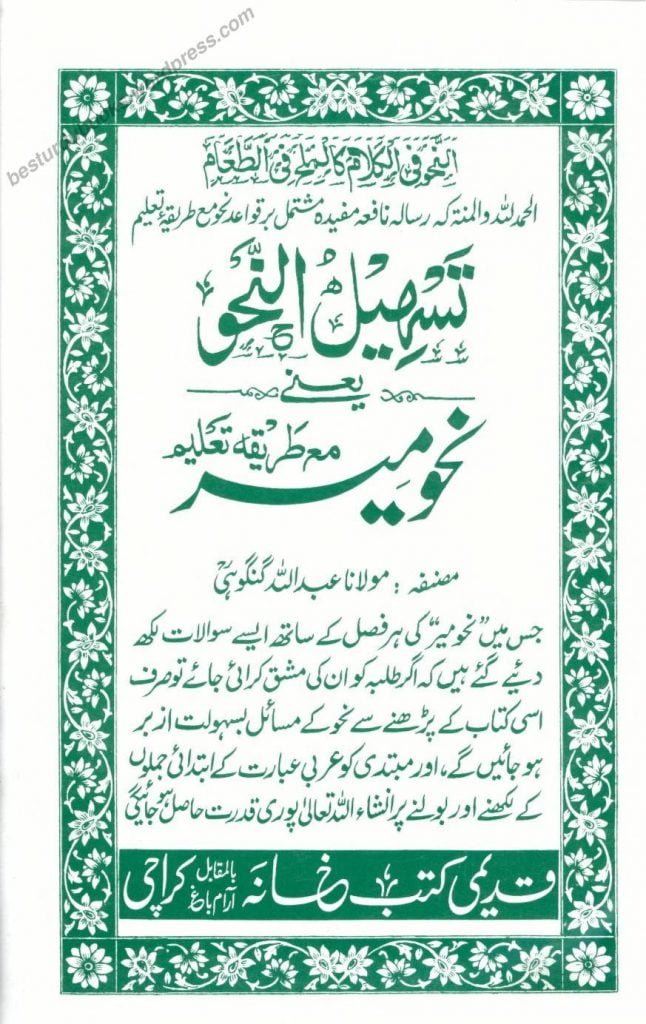 besturdubooks.wordpress.com
النحو فی الکلام کالملح فی الطعام
الحمد للہ والمنۃ کہ رسالہ نافعہ مفیدہ مشتمل بر قواعد نحو مع طریقۂ تعلیم
تَسْهِيلُ النَّحْوِ
یعنی
نحو میر مع طریقہ تعلیم
مصنفہ : مولانا عبداللہ گنگوہیؒ
جس میں ”نحو میر“ کی ہر فصل کے ساتھ ایسے سوالات لکھ
دئیے گئے ہیں کہ اگر طلبہ کو ان کی مشق کرائی جائے تو صرف
اسی کتاب کے پڑھنے سے نحو کے مسائل بسہولت ازبر
ہو جائیں گے، اور مبتدی کو عربی عبارت کے ابتدائی جملوں
کے لکھنے اور بولنے پر انشاء اللہ تعالیٰ پوری قدرت حاصل ہو جائیگی
قدیمی کتب خانہ بالمقابل آرام باغ کراچی